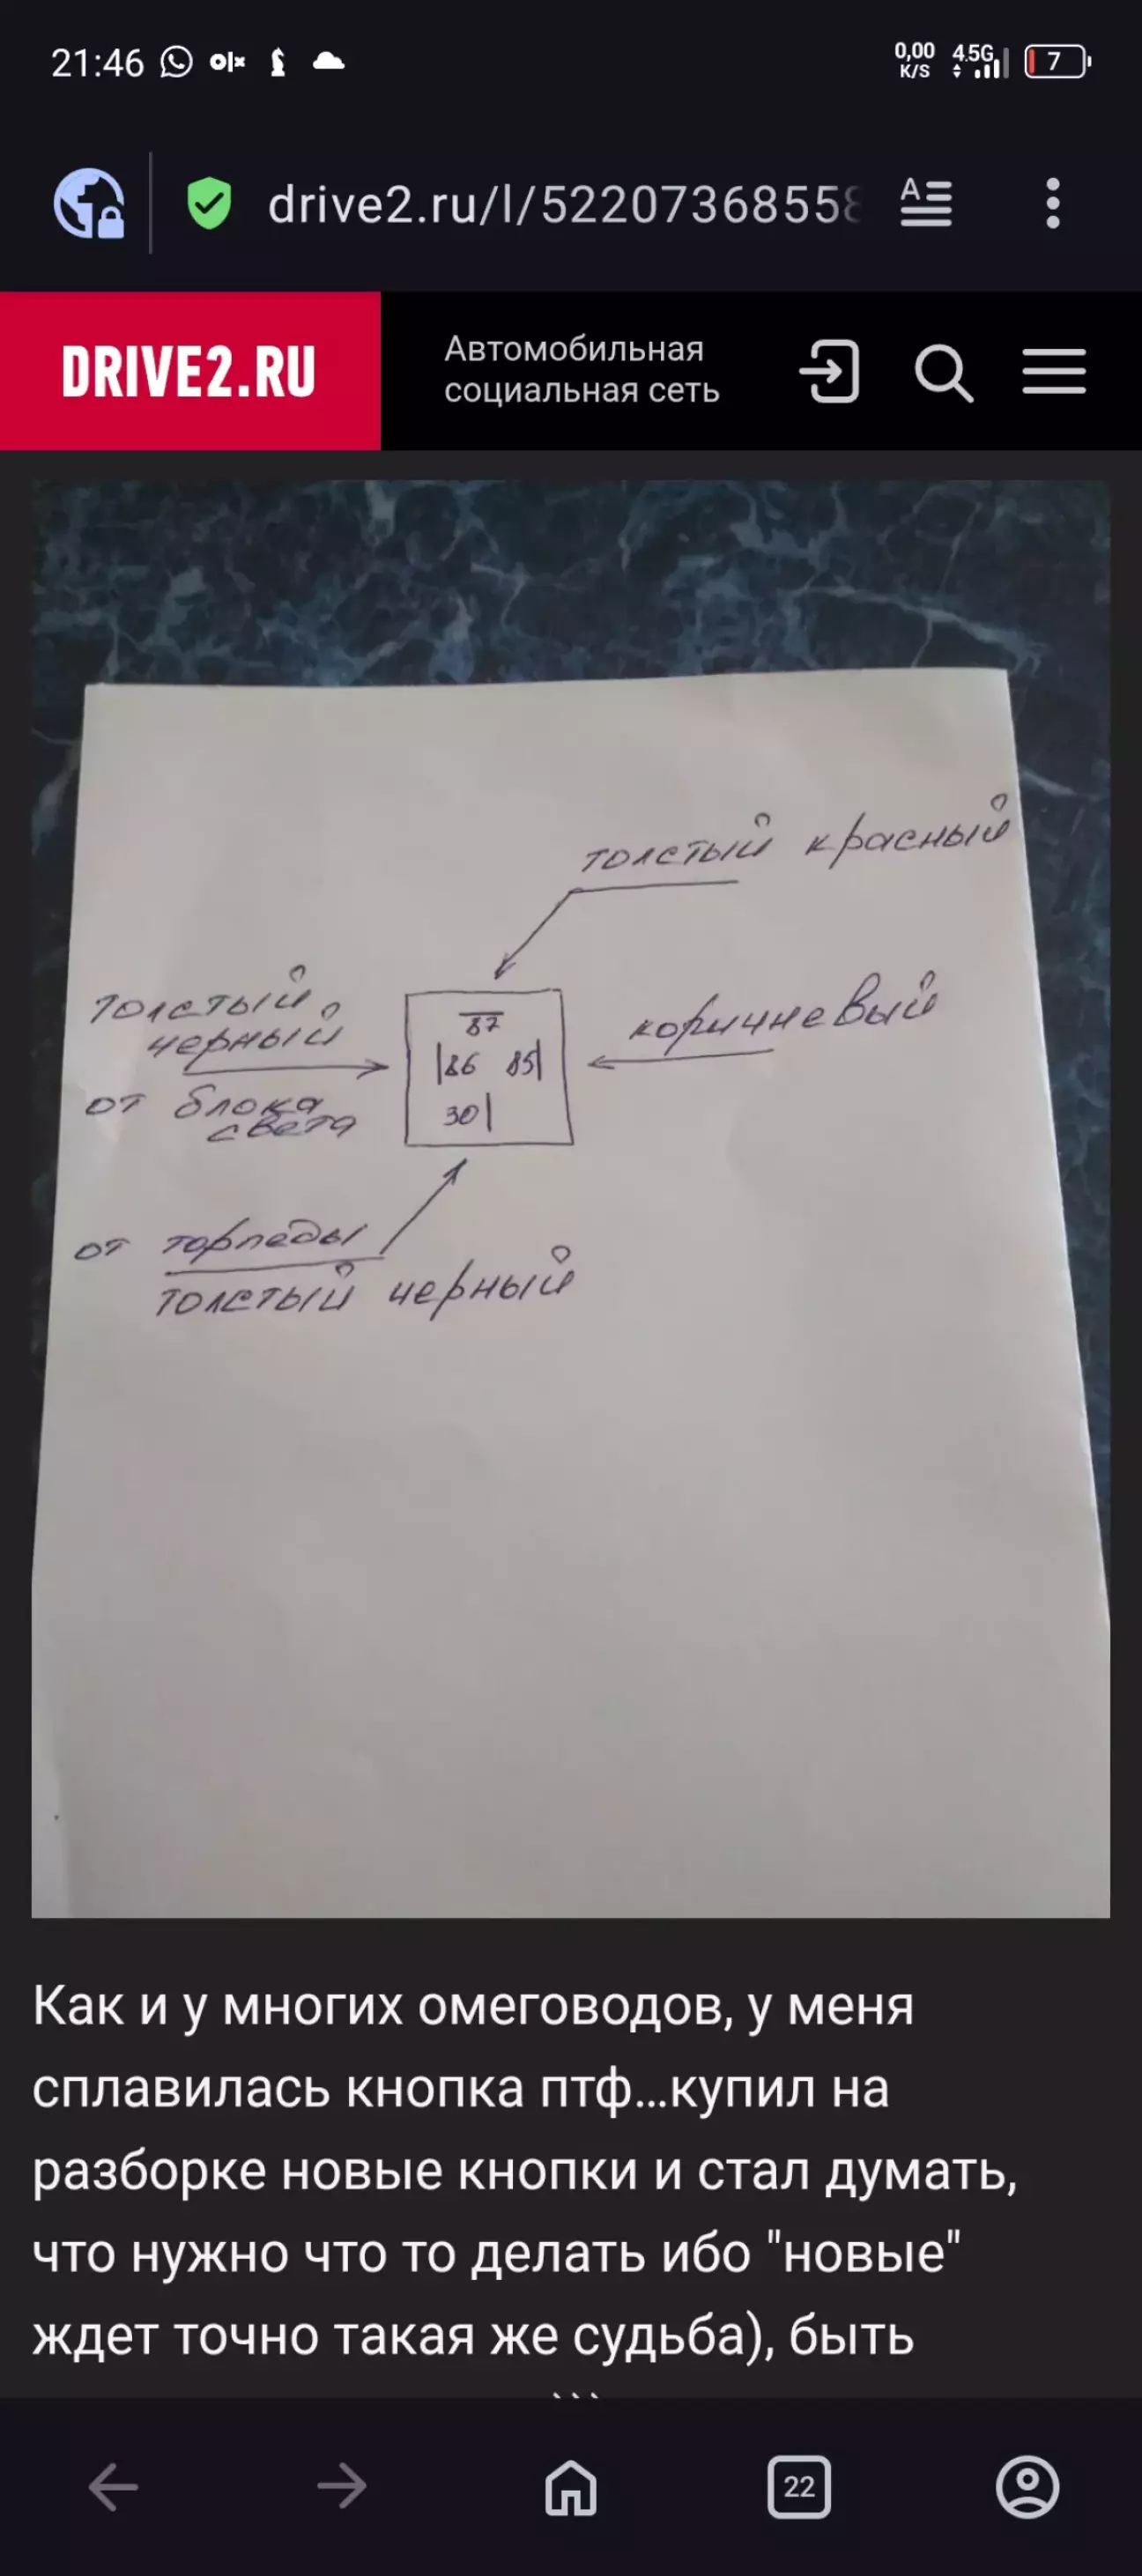 21:46 olx 0,00 K/S 4.5G 7
drive2.ru/l/52207368558
DRIVE2.RU
Автомобильная
социальная сеть
толстый красный
толстый
черный
от блока
света
87
86 85
30
коричневый
от торпеды
толстый черный
Как и у многих омеговодов, у меня
сплавилась кнопка птф...купил на
разборке новые кнопки и стал думать,
что нужно что то делать ибо "новые"
ждет точно такая же судьба), быть
22